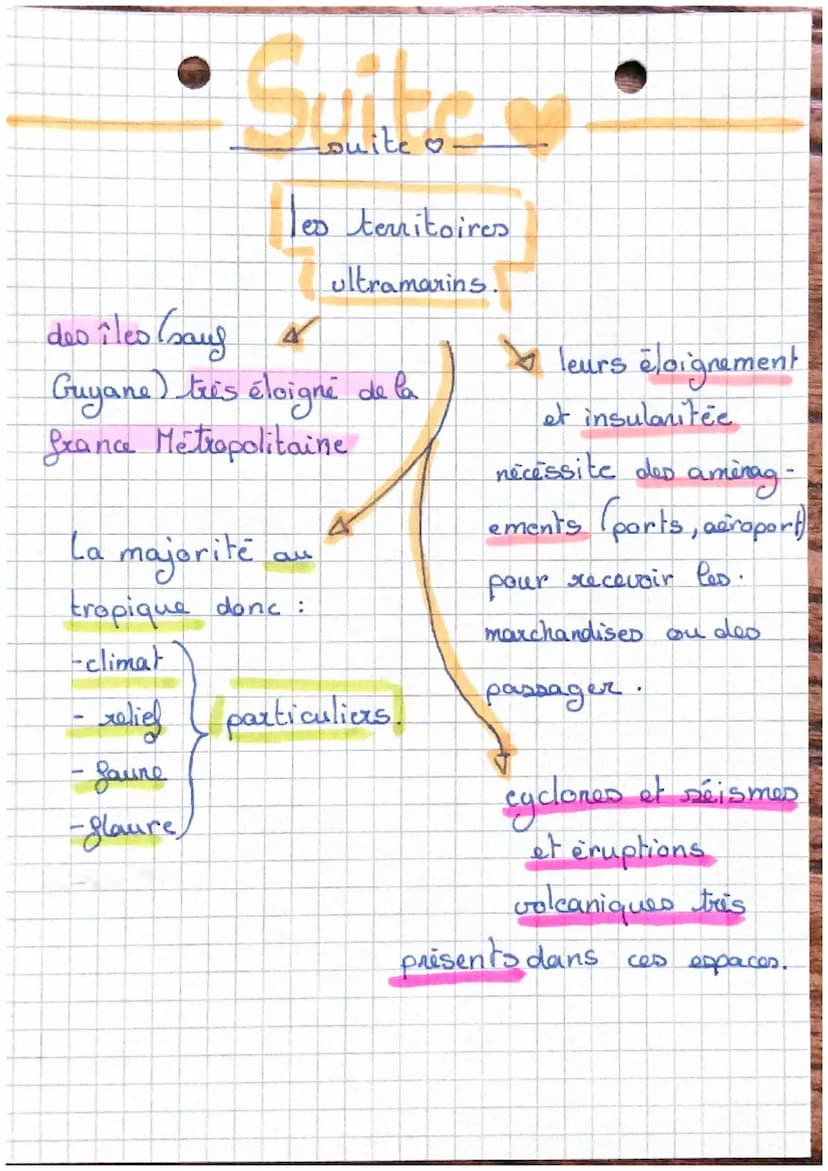 Suite ♥
suite ♡
les territoires
ultramarins.
des îles (sauf
Guyane) très éloigné de la
france Métropolitaine
La majorité au
tropique donc :
-climat
- relief
- faune
-flaure
particuliers.
leurs éloignement
et insularitée
nécéssite des aménag-
ements (ports, aéroport)
pour recevoir les.
marchandises ou des
passager.
cyclones et séismes
et éruptions
volcaniques très
présents dans ces espaces.